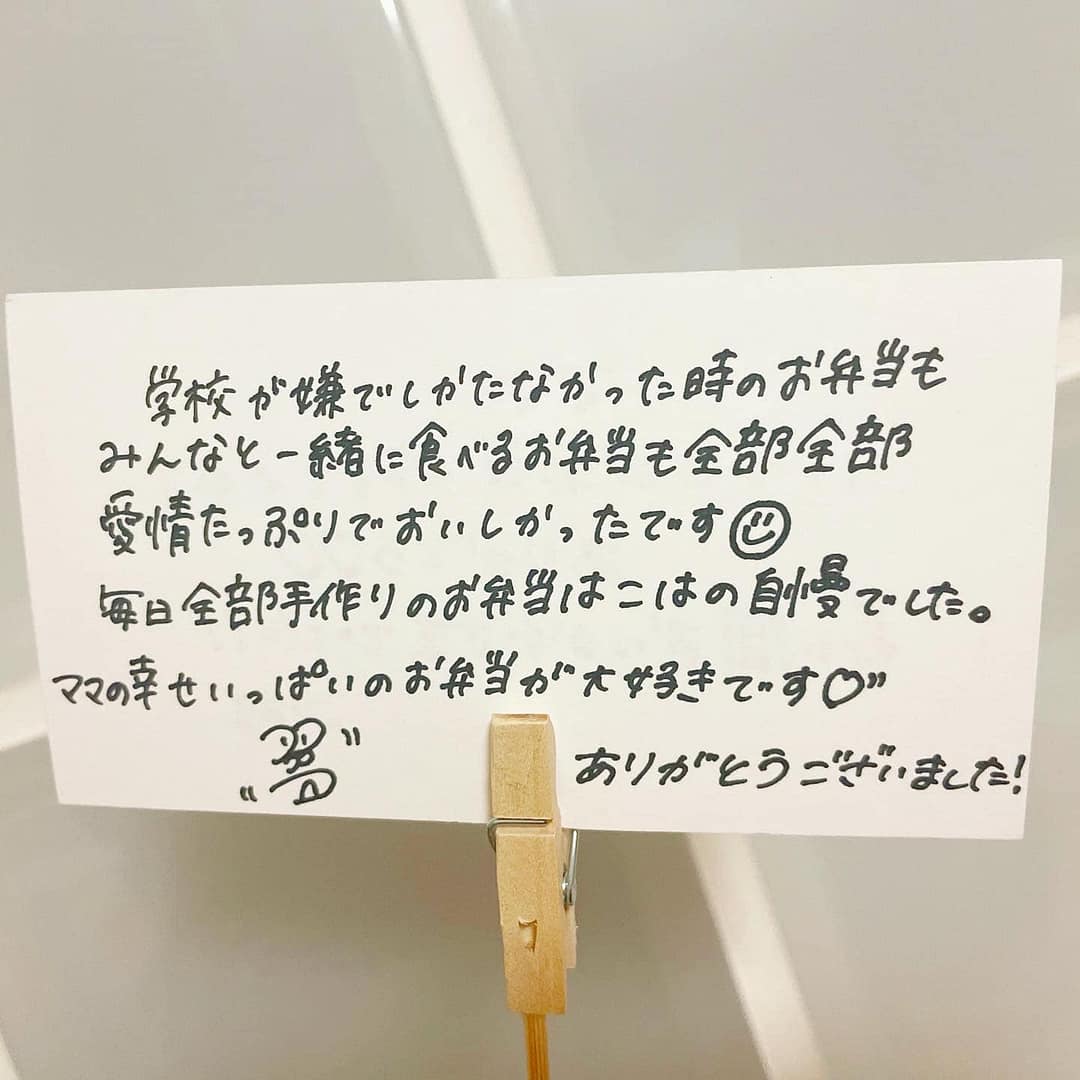 学校が嫌でしかたなかった時のお弁当も
みんなと一緒に食べるお弁当も全部全部
愛情たっぷりでおいしかったです
毎日全部手作りのお弁当はこはの自慢でした。
ママの幸せいっぱいのお弁当が大好きです♡”
ありがとうございました!